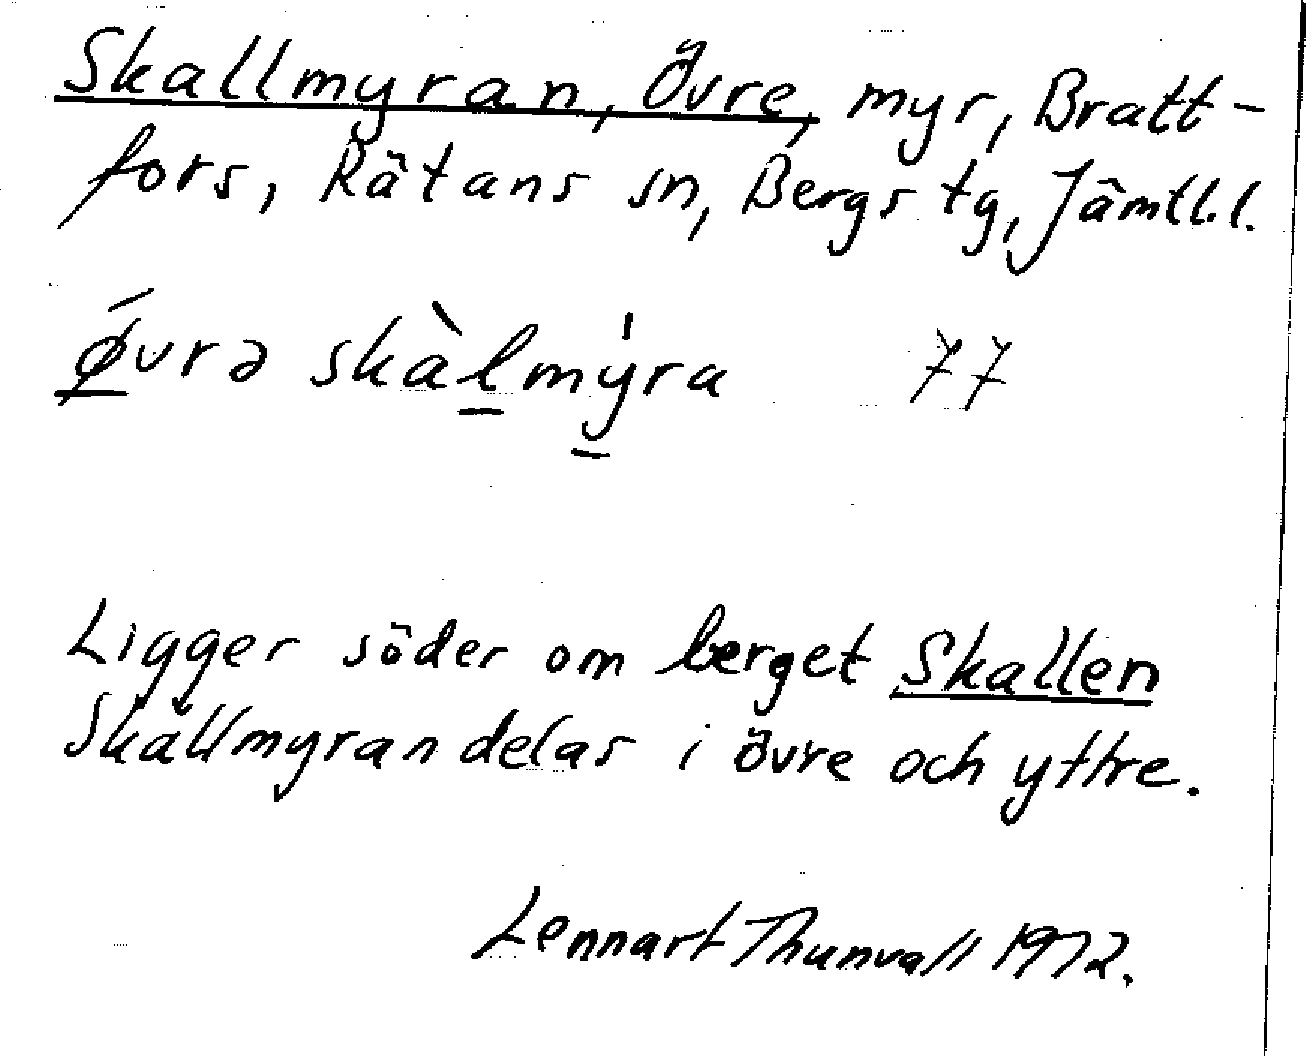 Skallmyran, Övre, myr, Bratt-
fors, Rätans sn, Bergs tg, Jämtl.l.
ǿvrə skàlmýra 77
Ligger söder om berget Skallen
Skallmyran delas i övre och yttre.
Lennart Thunvall 1972.